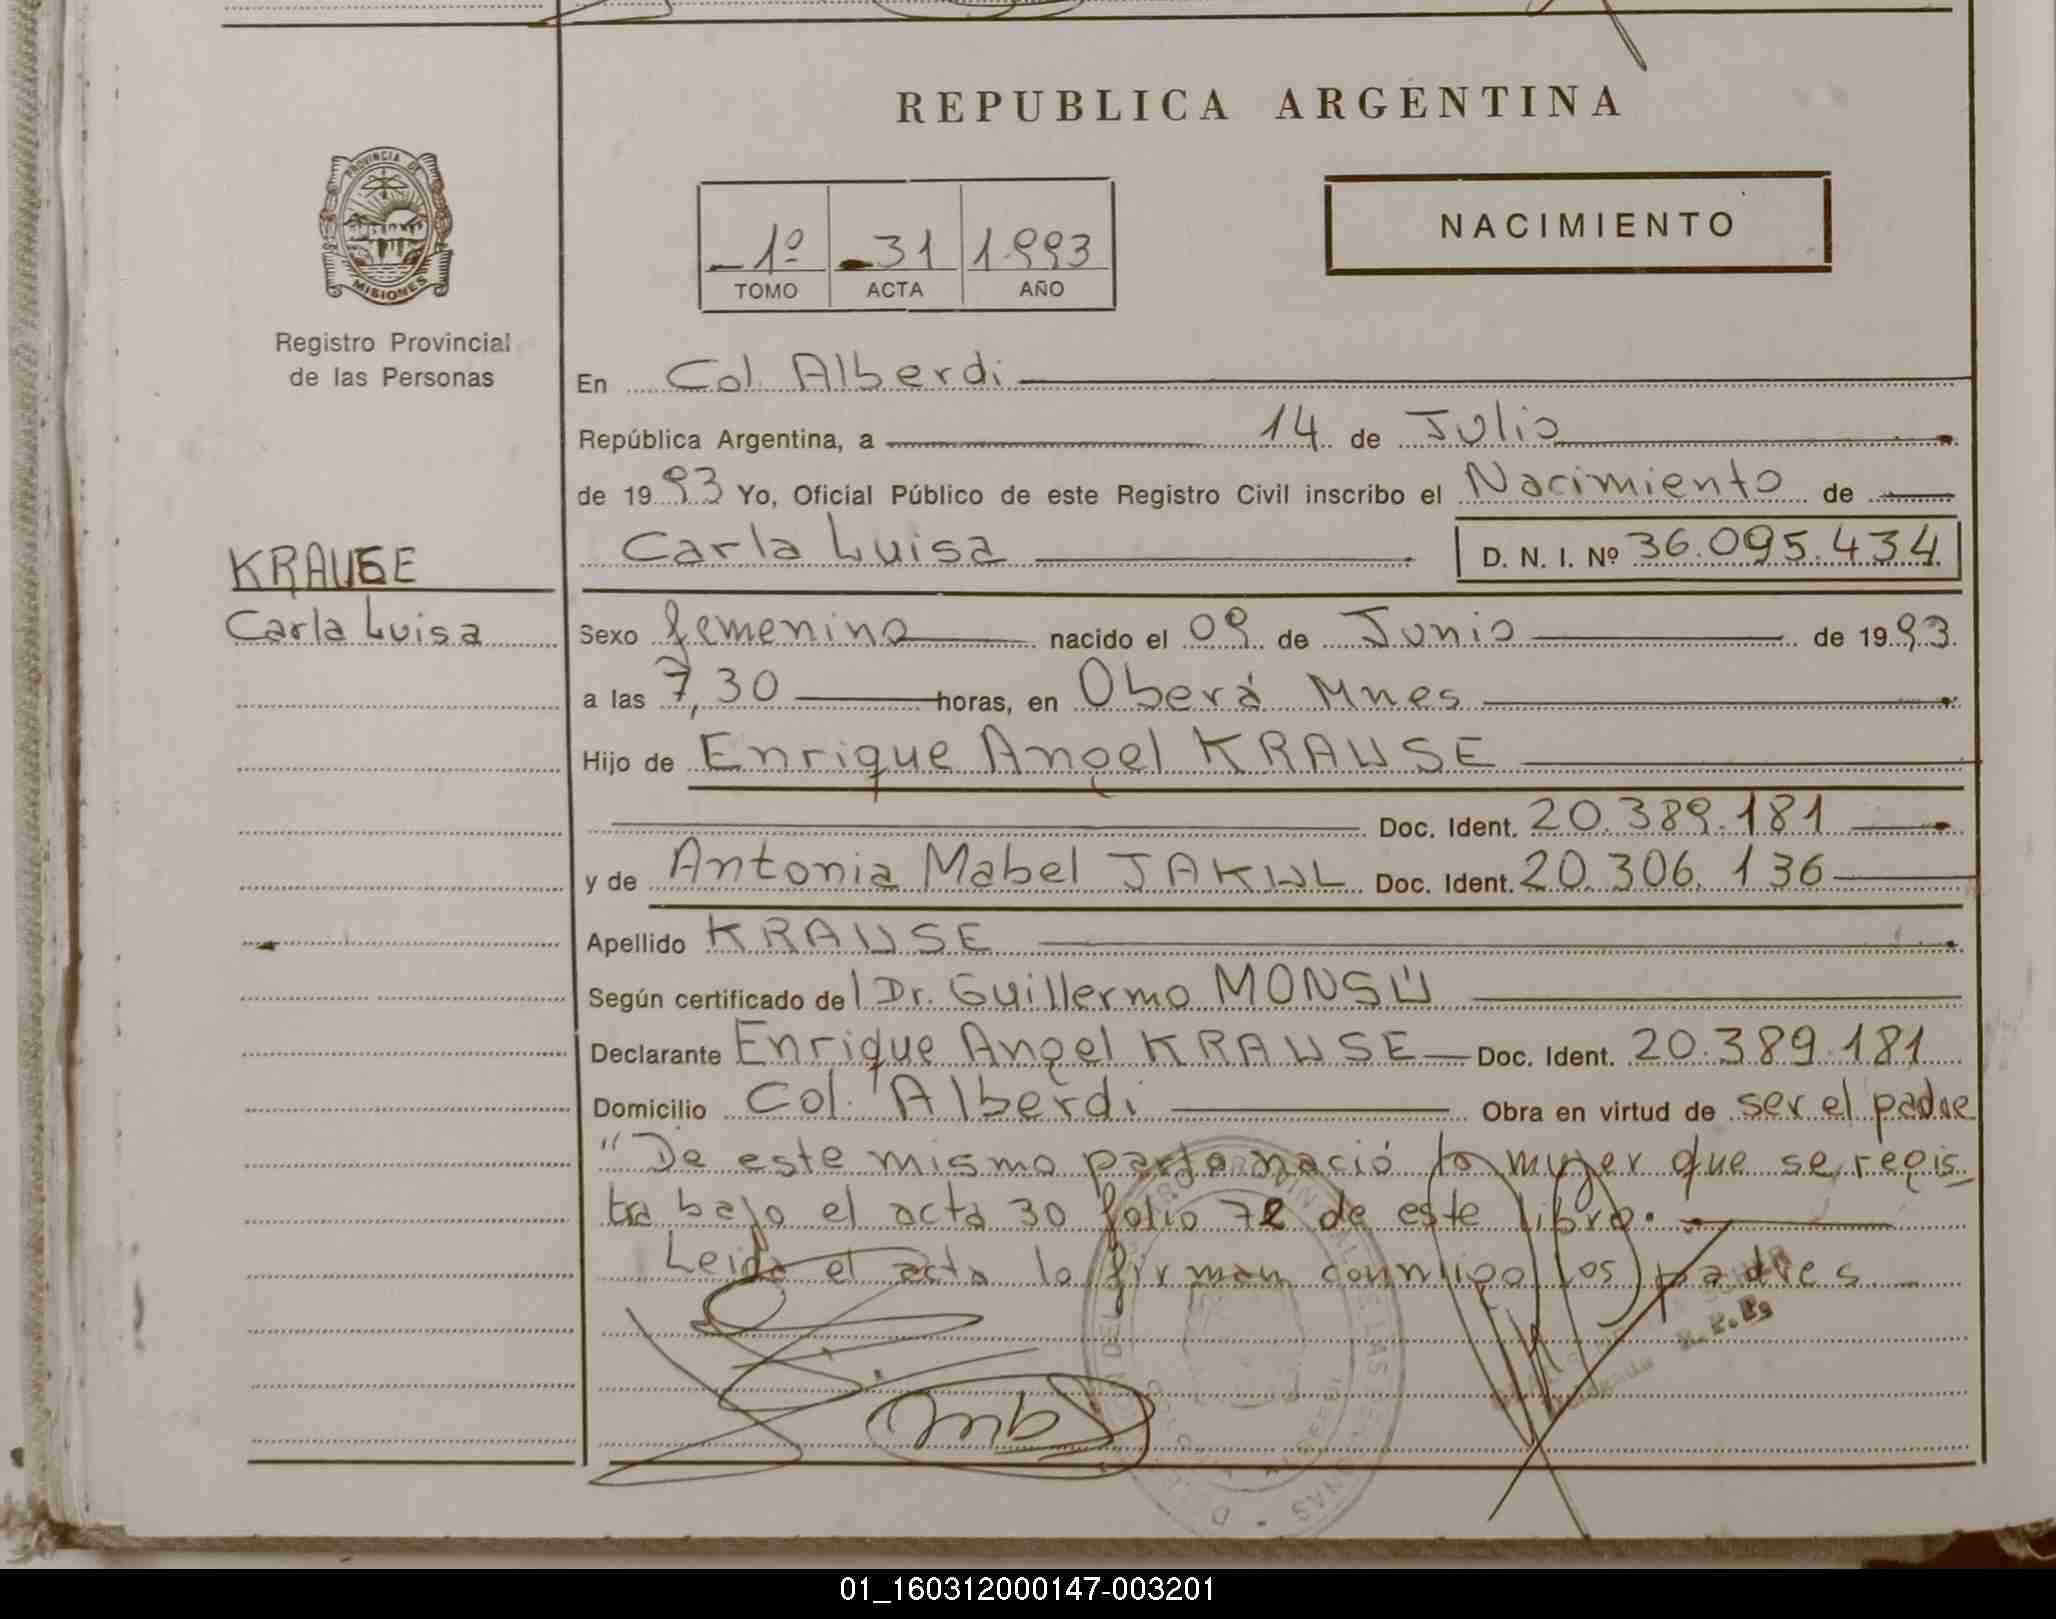 REPUBLICA ARGENTINA
PROVINCIA DE
MISIONES
Registro Provincial
de las Personas
1º 31 1.993
TOMO ACTA AÑO
NACIMIENTO
En Col. Alberdi
República Argentina, a 14 de Julio
de 1993 Yo, Oficial Público de este Registro Civil inscribo el Nacimiento de
Carla Luisa D. N. I. Nº 36.095.434
KRAUSE
Carla Luisa
Sexo femenino nacido el 09 de Junio de 1993.
a las 7,30 horas, en Oberá Mnes
Hijo de Enrique Angel KRAUSE
Doc. Ident. 20.389.181
y de Antonia Mabel JAKUL Doc. Ident. 20.306.136
Apellido KRAUSE
Según certificado del Dr. Guillermo MONSÚ
Declarante Enrique Angel KRAUSE Doc. Ident. 20.389.181
Domicilio Col. Alberdi Obra en virtud de ser el padre
"De este mismo parto nació la mujer que se regis
tra bajo el acta 30 folio 72 de este libro.
Leida el acta la firman conmigo los padres
01_160312000147-003201